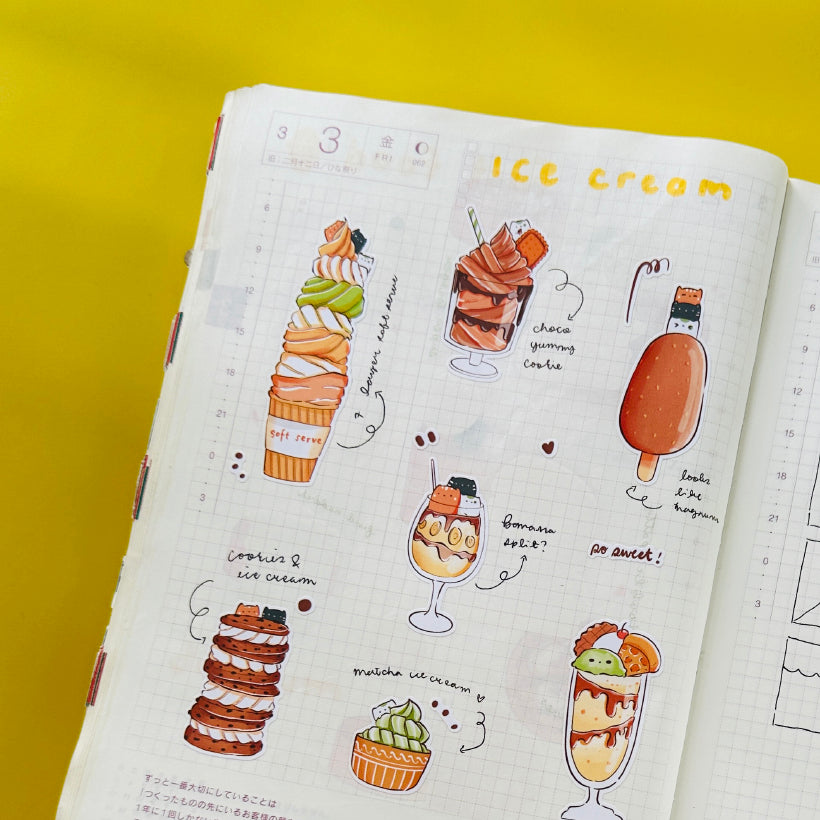 3 3 金 FRI 062
旧:二月十二日/ひな祭り
ICE cream
6
9
12
15
18
21
0
3
soft serve
soft serve
choco
yummy
cookie
looks
like
magnum
banana
split?
so sweet!
cookies &
ice cream
matcha ice cream
ずっと一番大切にしていることは
「つくったものの先にいるお客様の
1年に1回しかない
6
9
12
15
18
21
0
3